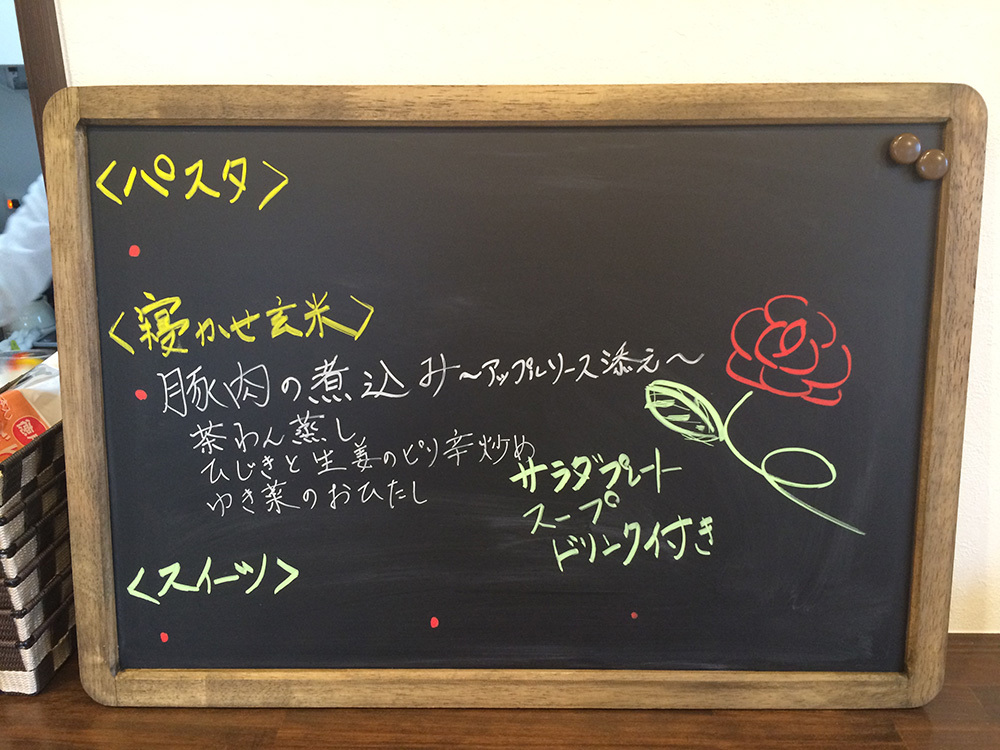 <パスタ>
<寝かせ玄米>
豚肉の煮込み～アップルソース添え～
茶わん蒸し
ひじきと生姜のピリ辛炒め
ゆき菜のおひたし
サラダプレート
スープ
ドリンク付き
<スイーツ>